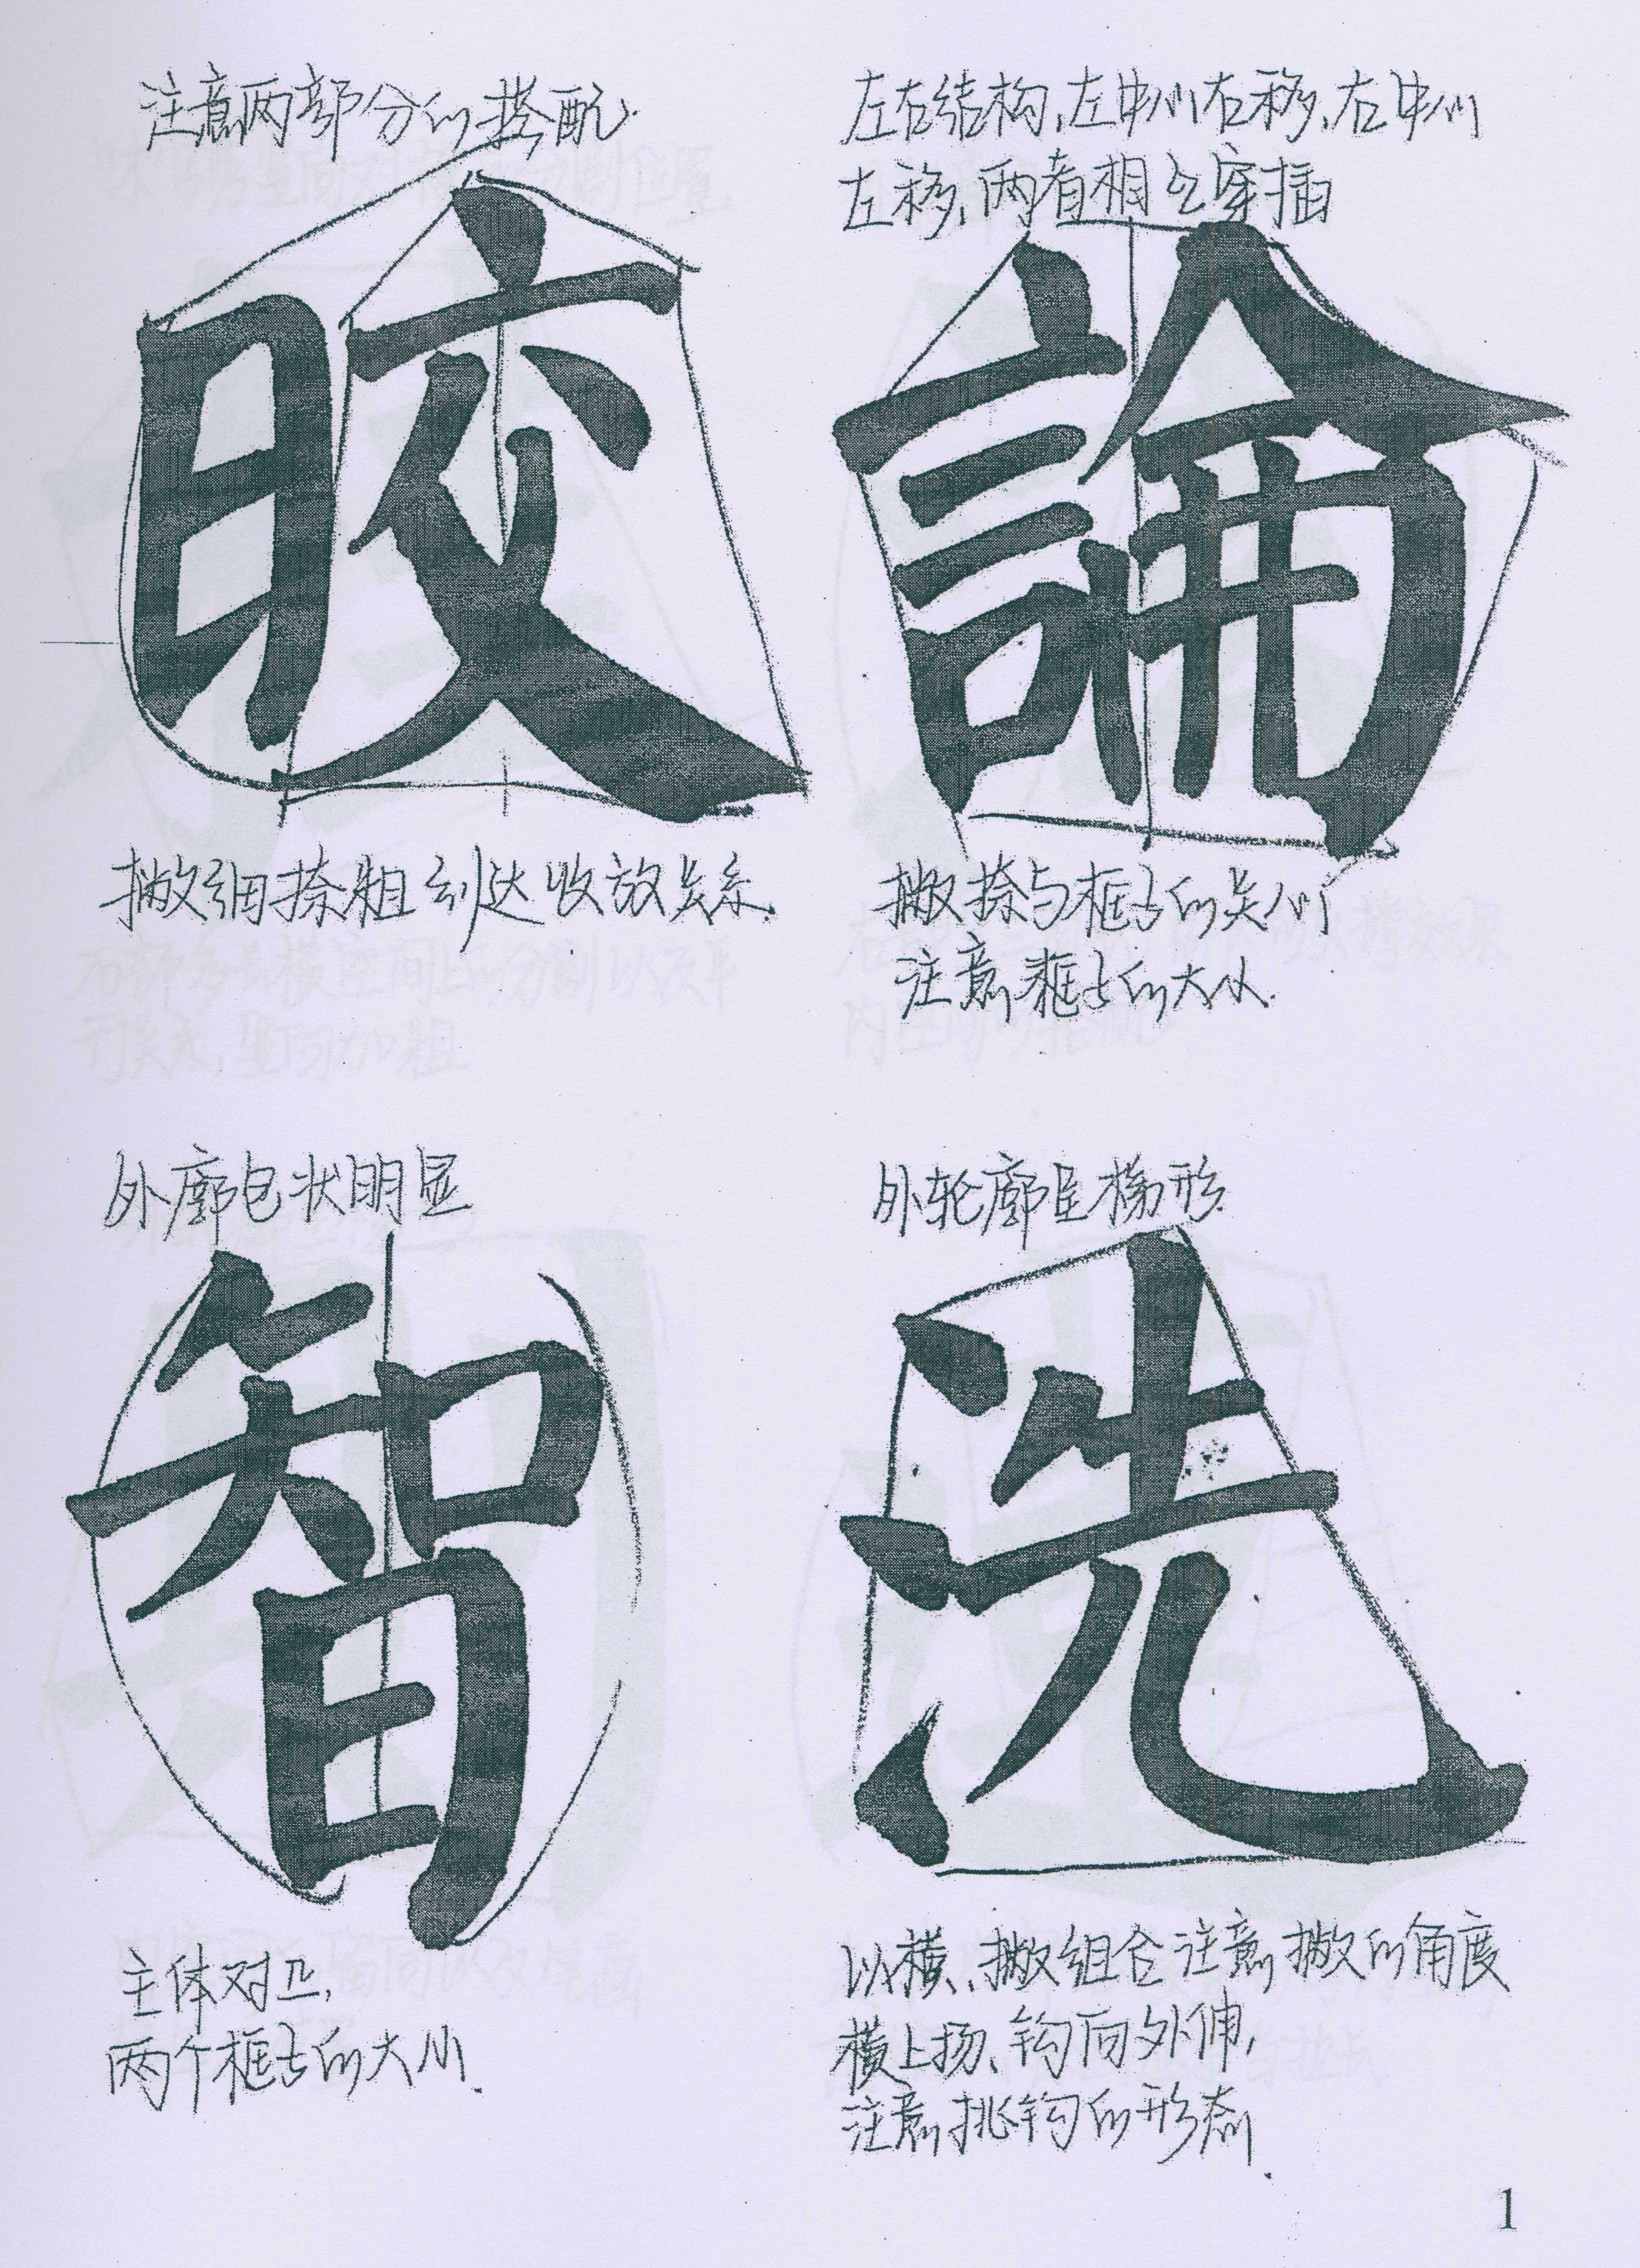 注意两部分的搭配.
晈
撇细捺粗到达收放关系.
左右结构,左中心右移,右中心
左移,两者相互穿插
論
撇捺与框与的关心
注意框与的大小.
外廓包状明显
智
主体对正,
两个框与的大小.
外轮廓呈梯形.
洗
以横、撇组合注意撇的角度
横上扬、钩向外伸,
注意挑钩的形态.
1